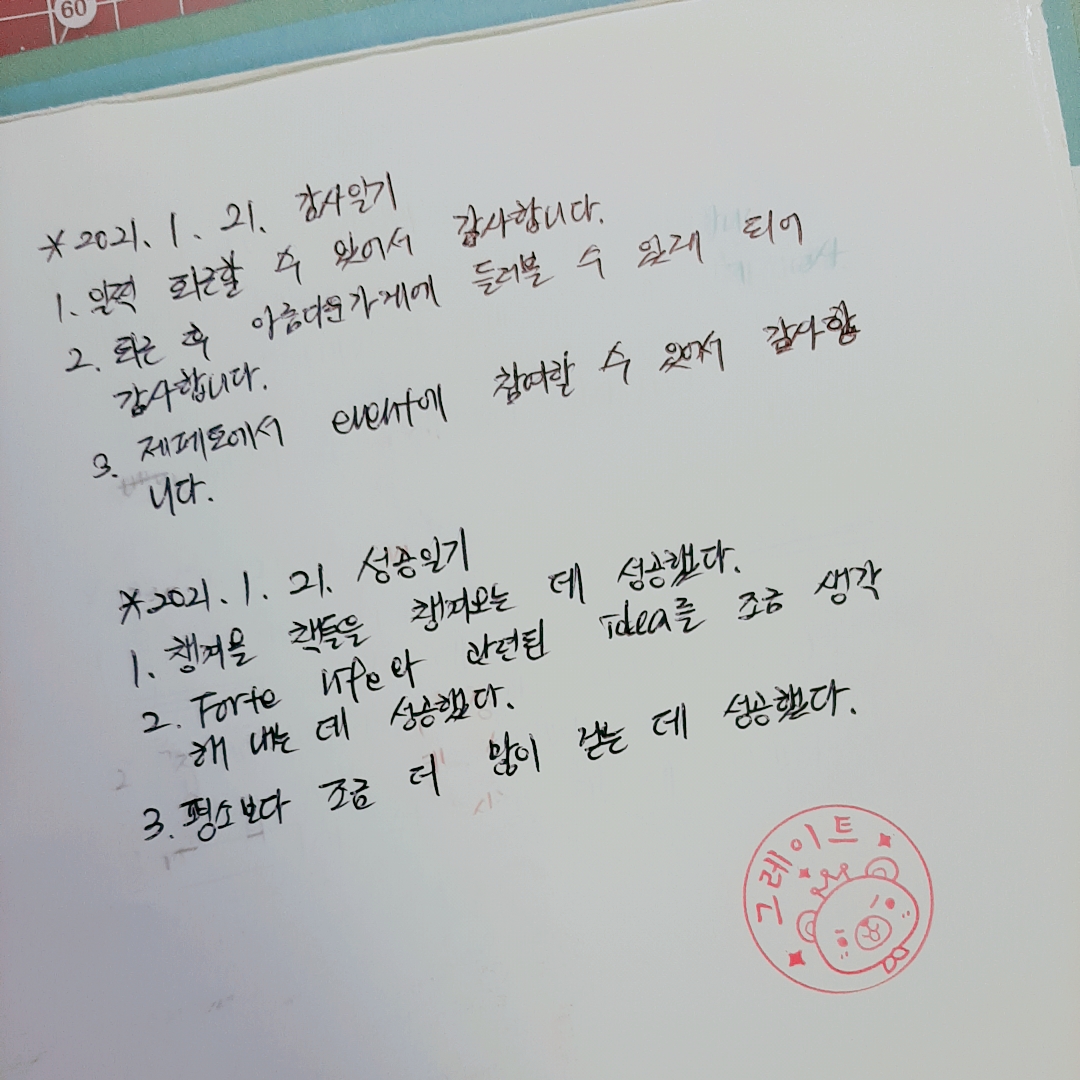 60
*2021. 1. 21. 감사일기
1. 일찍 퇴근할 수 있어서 감사합니다.
2. 퇴근 후 아름다운가게에 들러볼 수 있게 되어
감사합니다.
3. 제페토에서 event에 참여할 수 있어서 감사합
니다.
*2021. 1. 21. 성공일기
1. 챙겨올 책들을 챙겨오는 데 성공했다.
2. Forte life와 관련된 idea를 조금 생각
해 내는 데 성공했다.
3. 평소보다 조금 더 많이 걷는 데 성공했다.
그레이트